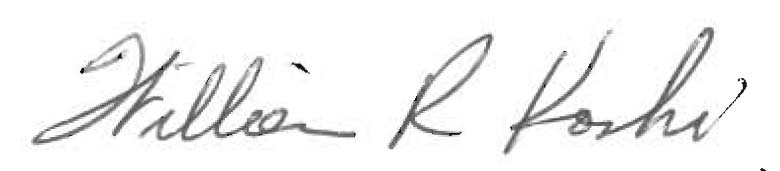 William R Koshi